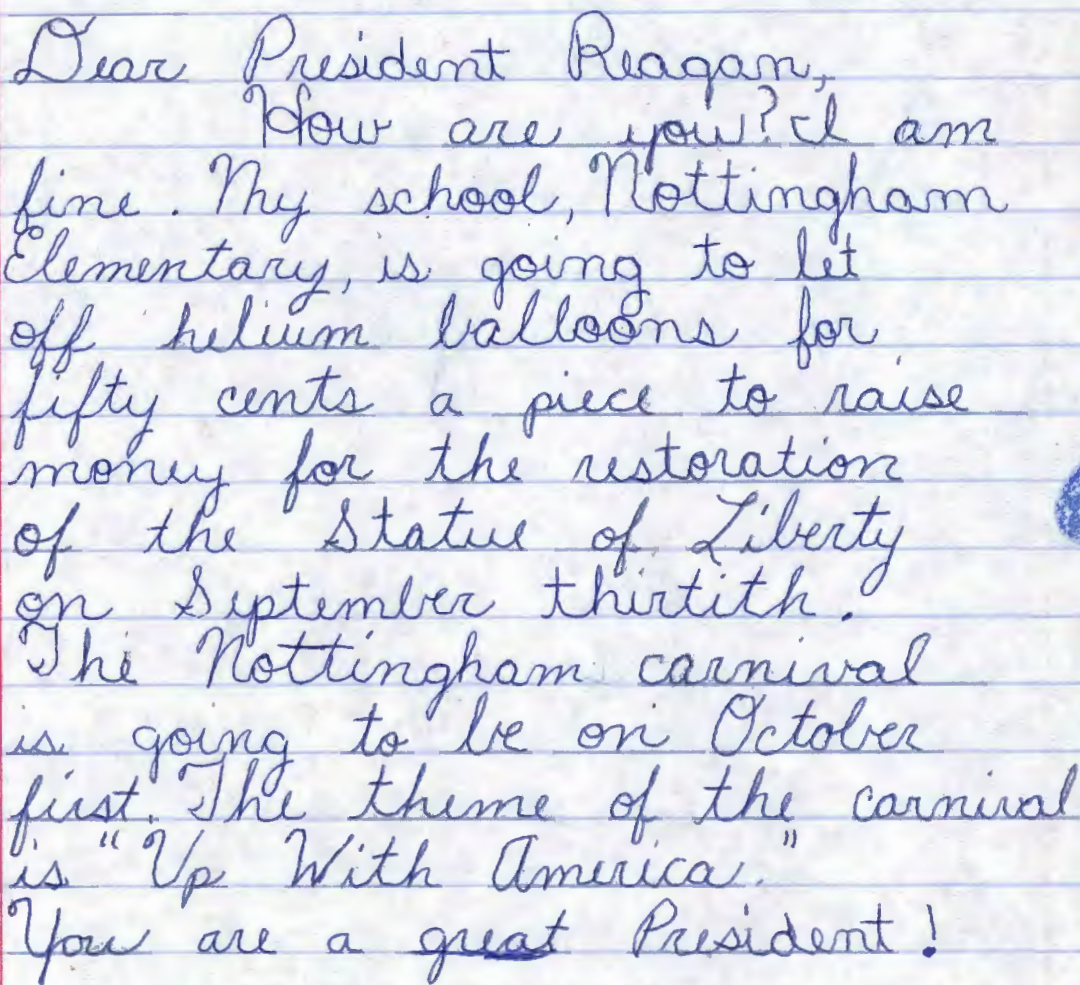 Dear President Reagan,
How are you? I am
fine. My school, Nottingham
Elementary, is going to let
off helium balloons for
fifty cents a piece to raise
money for the restoration
of the Statue of Liberty
on September thirtith.
The Nottingham carnival
is going to be on October
first. The theme of the carnival
is "Up With America."
You are a great President!